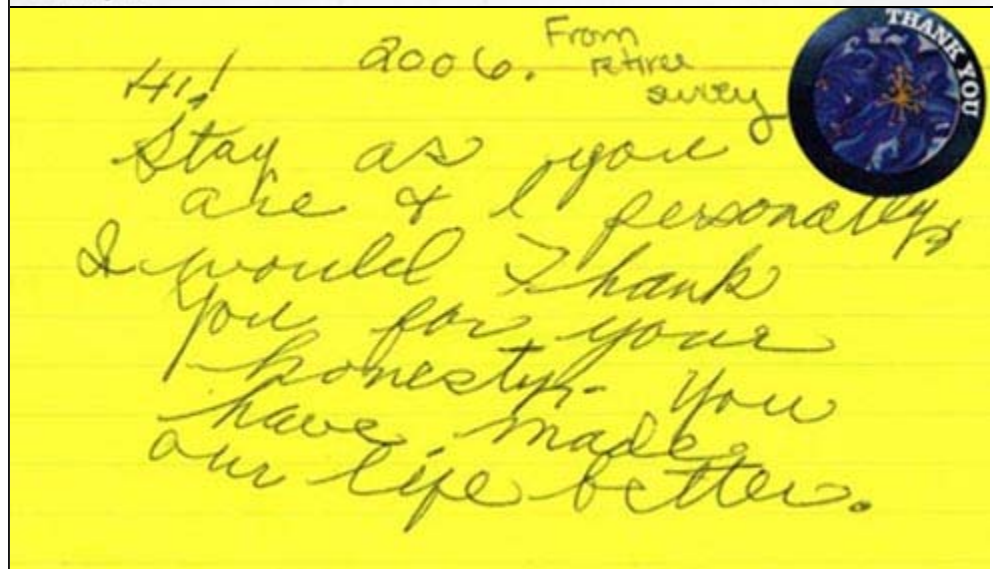 2006.
From
retiree
survey
THANK YOU
Hi!
Stay as you
are & I personally,
I would Thank
You for your
honesty- You
have made
our life better.